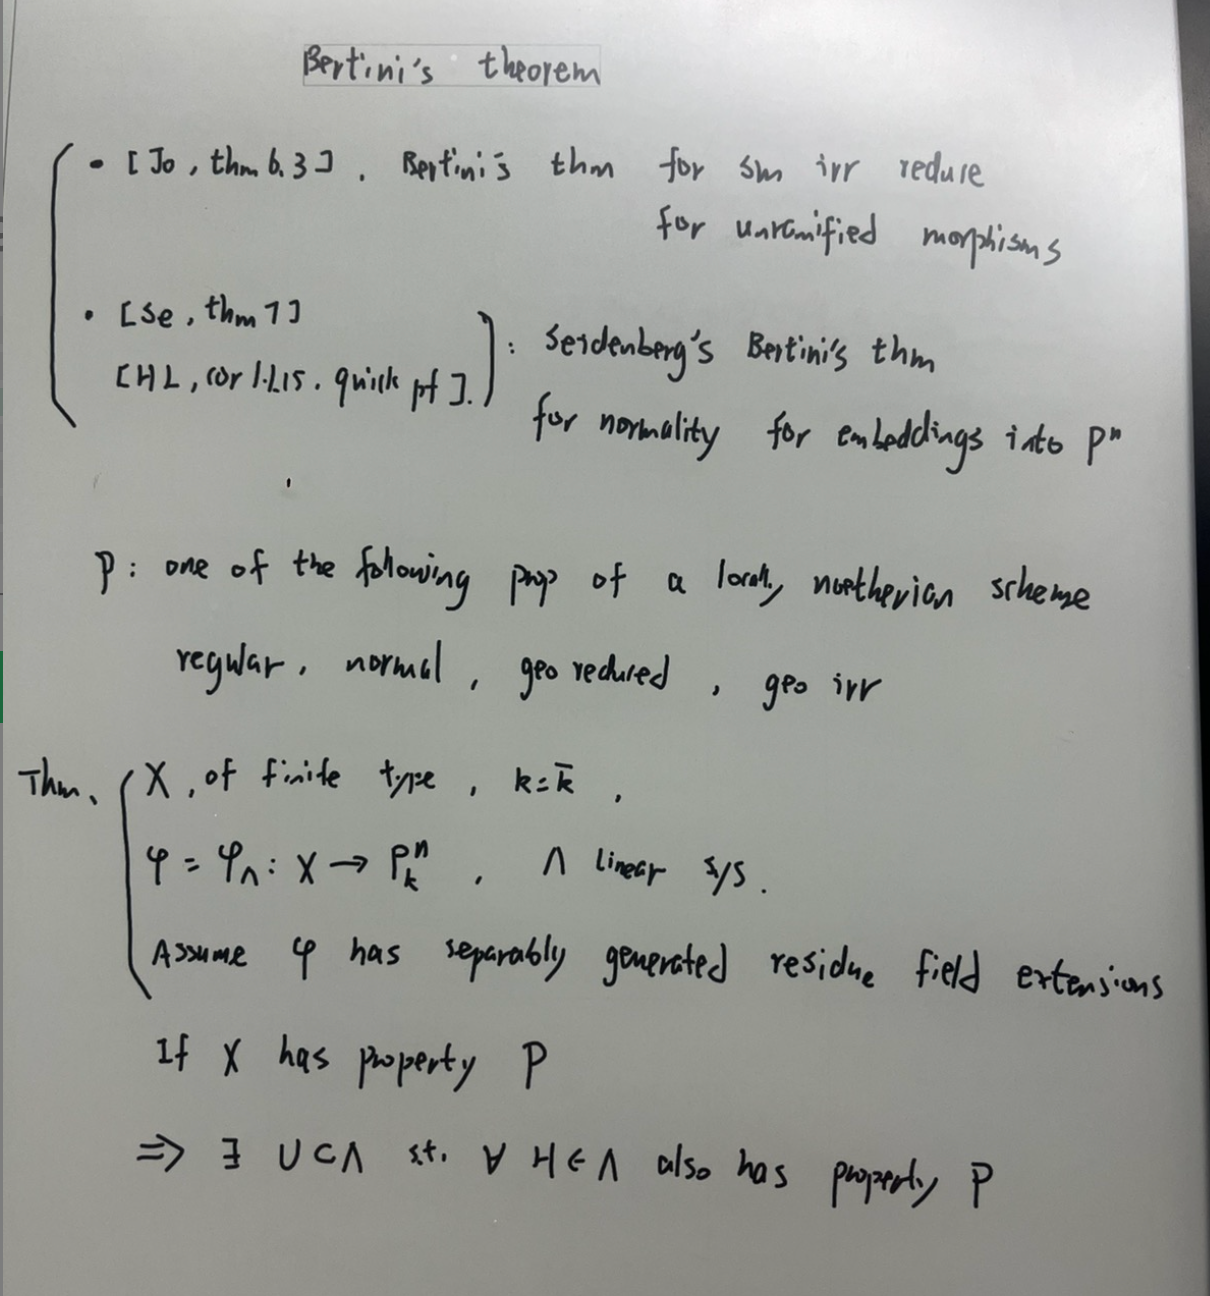 Bertini's theorem
• [Jo, thm 6.3]. Bertini's thm for sm irr reduce
for unramified morphisms
• [Se, thm 7]
[HL, cor 1.1.15. quick pf].
: Seidenberg's Bertini's thm
for normality for embeddings into Pⁿ
P: one of the following prop of a locally noetherian scheme
regular, normal, geo reduced, geo irr
Thm. X, of finite type, k = k̄,
φ = φ_Λ: X → P_k^n, Λ linear s/s.
Assume φ has separably generated residue field extensions
If X has property P
⇒ ∃ U ⊂ Λ s.t. ∀ H ∈ Λ also has property P